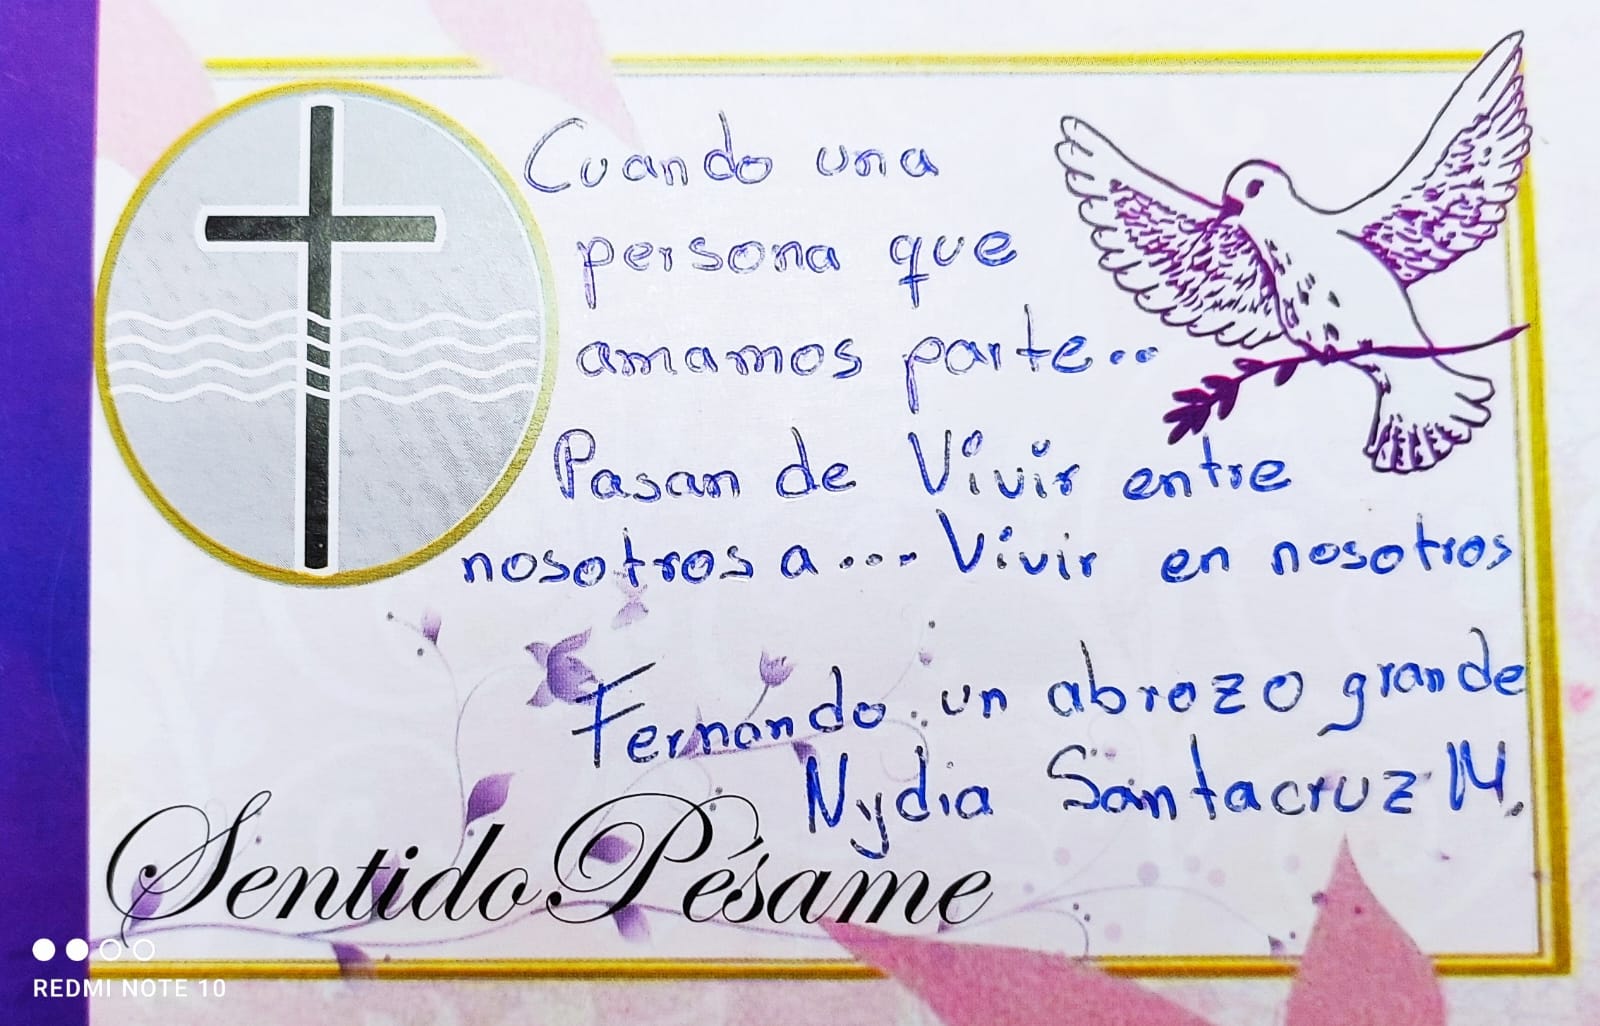 Cuando una
persona que
amamos parte..
Pasan de Vivir entre
nosotros a.... Vivir en nosotros
Fernando un abrazo grande
Nydia Santacruz M.
Sentido Pésame
REDMI NOTE 10